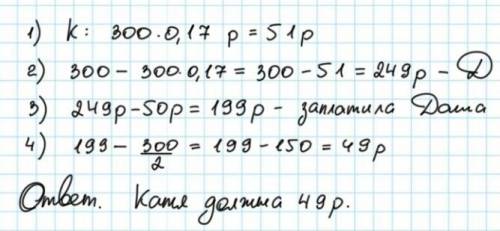 1) К: 300·0,17 р = 51р
2) 300 - 300·0,17 = 300 - 51 = 249р - Д
3) 249р - 50р = 199р - заплатила Даша
4) 199 - 300/2 = 199 - 150 = 49р
Ответ. Катя должна 49р.